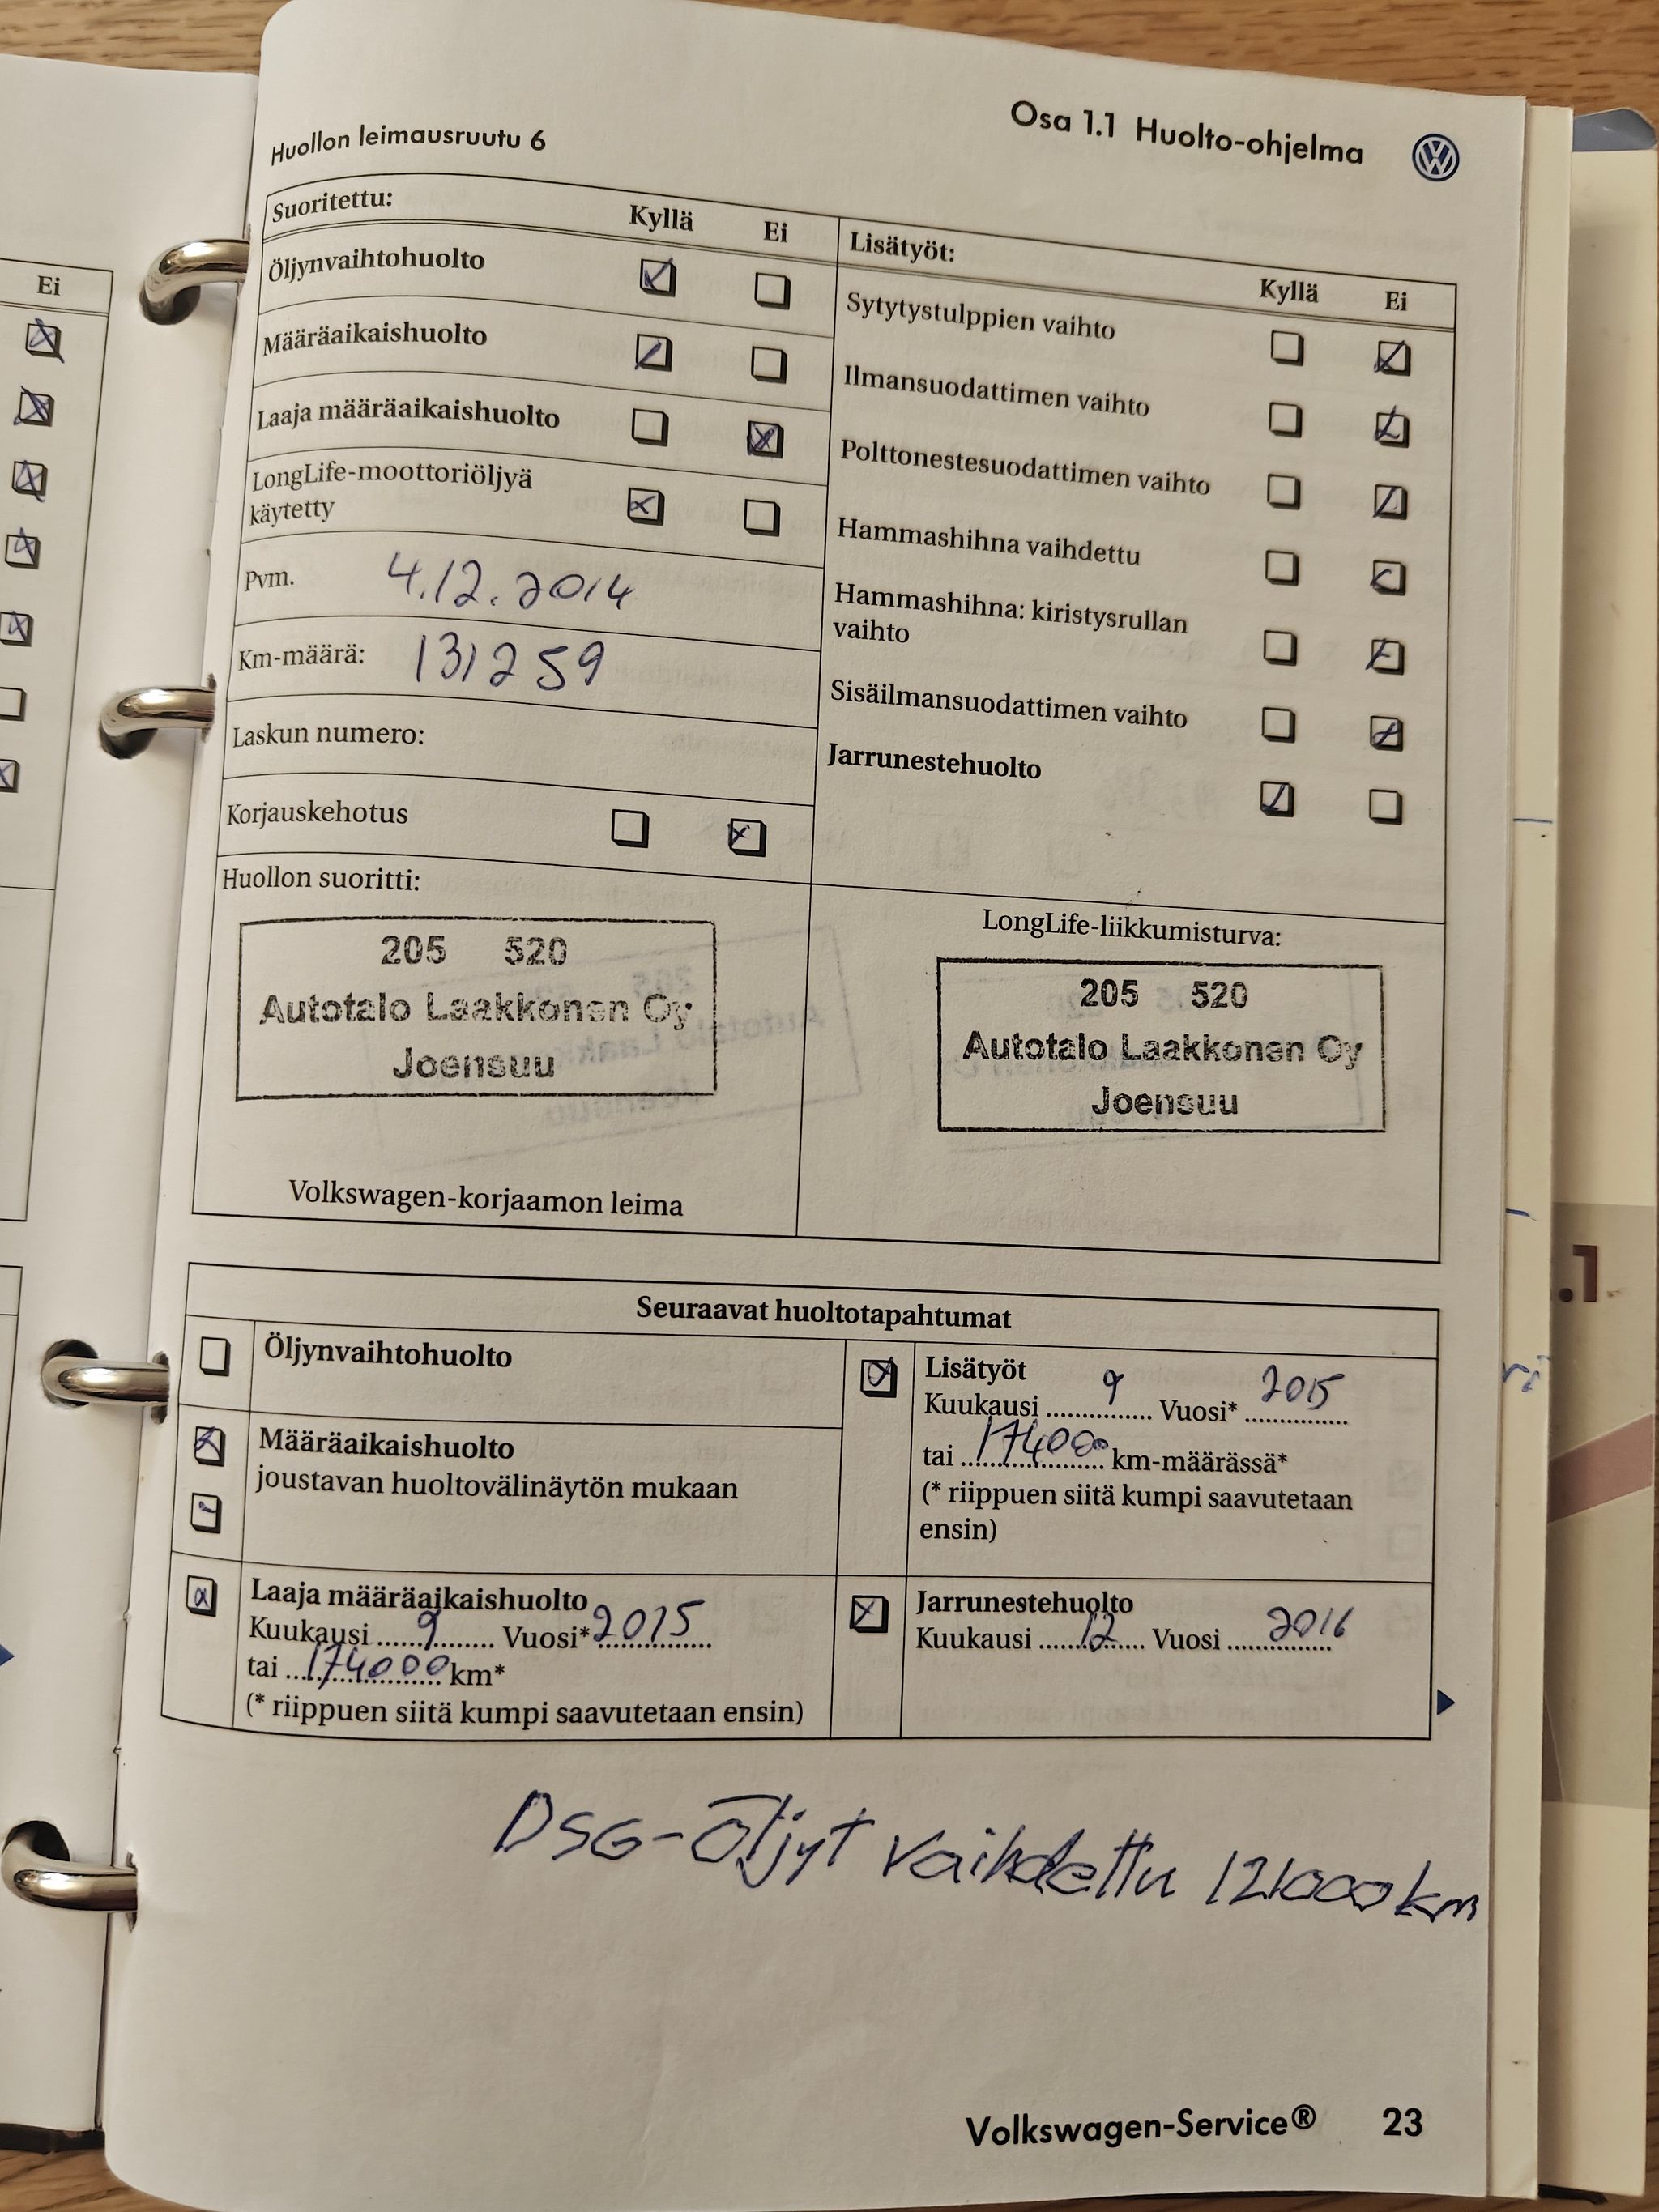 Osa 1.1 Huolto-ohjelma
Huollon leimausruutu 6
Ei
Suoritettu: Kyllä Ei
Öljynvaihtohuolto
Määräaikaishuolto
Laaja määräaikaishuolto
LongLife-moottoriöljyä
käytetty
Pvm. 4.12.2014
Km-määrä: 131259
Laskun numero:
Korjauskehotus
Huollon suoritti:
205 520
Autotalo Laakkonen Oy
Joensuu
Volkswagen-korjaamon leima
Lisätyöt:
Kyllä Ei
Sytytystulppien vaihto
Ilmansuodattimen vaihto
Polttonestesuodattimen vaihto
Hammashihna vaihdettu
Hammashihna: kiristysrullan
vaihto
Sisäilmansuodattimen vaihto
Jarrunestehuolto
LongLife-liikkumisturva:
205 520
Autotalo Laakkonen Oy
Joensuu
Seuraavat huoltotapahtumat
Öljynvaihtohuolto
Määräaikaishuolto
joustavan huoltovälinäytön mukaan
Laaja määräaikaishuolto
Kuukausi ......9......... Vuosi* 2015
tai ...174000 km*
(* riippuen siitä kumpi saavutetaan ensin)
Lisätyöt
Kuukausi 9 Vuosi* 2015
tai 174000 km-määrässä*
(* riippuen siitä kumpi saavutetaan
ensin)
Jarrunestehuolto
Kuukausi 12 Vuosi 2016
DSG-Öljyt vaihdettu 121000km
.1
Volkswagen-Service® 23